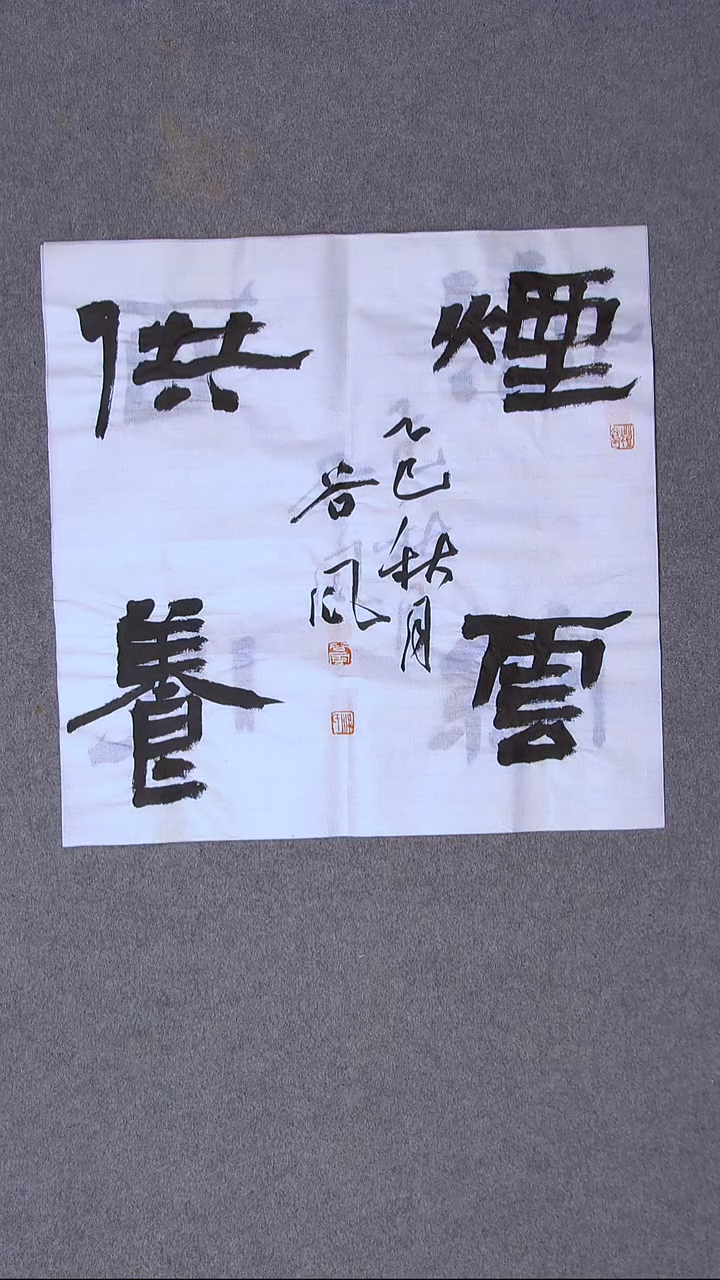 煙雲
供養
乙巳秋月
谷风